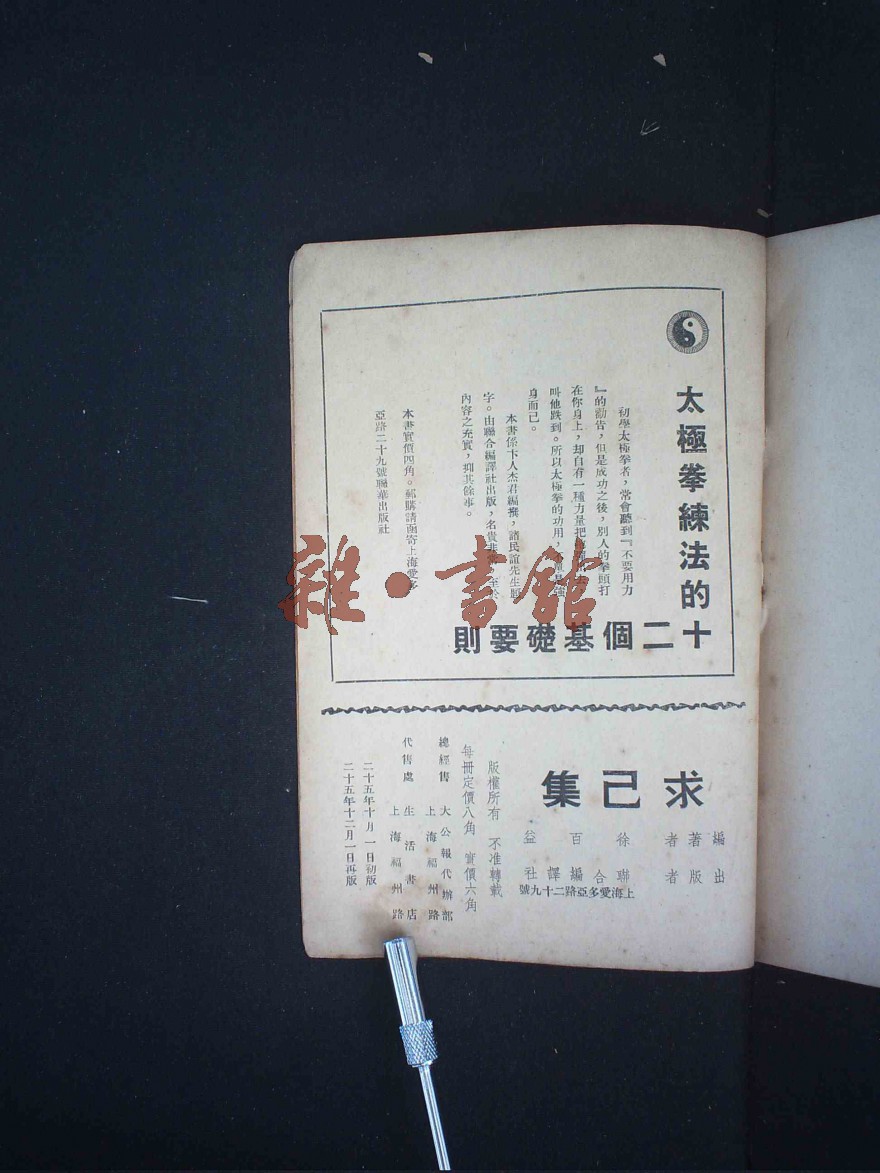 太極拳練法的
十二個基礎要則
初學太極拳者，常會聽到『不要用力
』的勸告，但是成功之後，別人的拳頭打
在你身上，却自有一種力量把
叫他跌到。所以太極拳的功用，
身而已。
本書係卞人杰君編撰，諸民誼先生
字。由聯合編譯社出版，名貴 至於
內容之充實，抑其餘事。
本書實價四角。郵購請函寄上海愛多
亞路二十九號聯華出版社
求己集
編著者 徐百益
出版者 聯合編譯社
上海愛多亞路二十九號
版權所有 不准轉載
每冊定價八角 實價六角
總經售 大公報代辦部
上海福州路
代售處 生活書店
上海福州路
二十五年十月一日初版
二十五年十二月一日再版
雜·書館